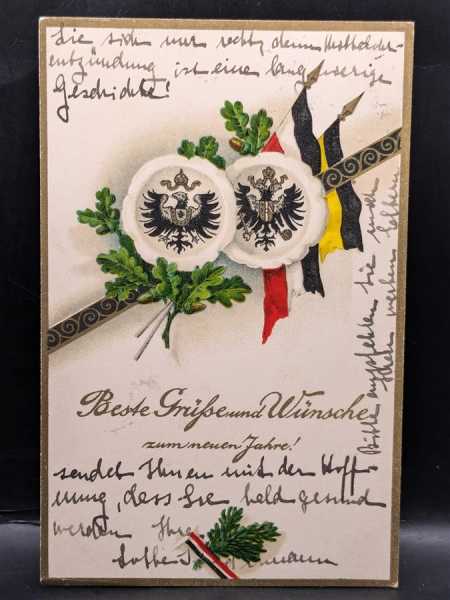 Sie sich nur recht, denn Mittelohr-
entzündung ist eine langwierige
Geschichte!
Beste Grüße und Wünsche
zum neuen Jahre!
sendet Ihnen mit der Hoff-
nung, dass Sie bald gesund
werden Ihre
Bitte empfehlen Sie mich
Ihren werten Eltern